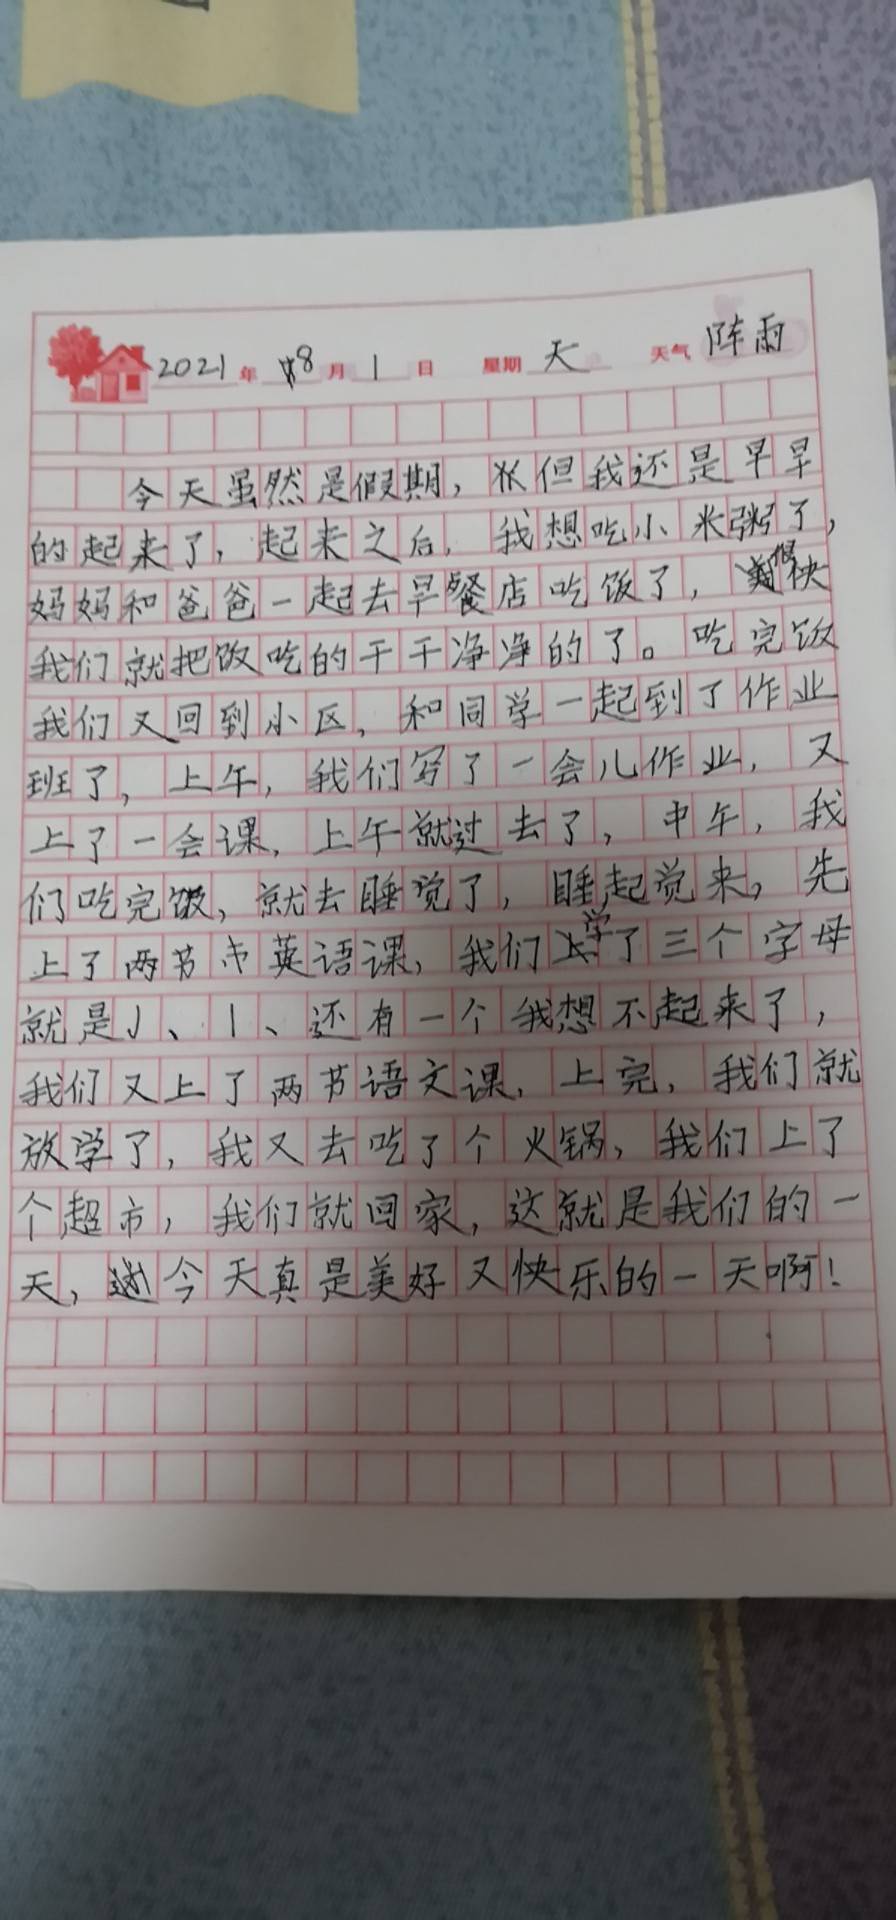 2021年8月1日 星期天 天气阵雨
今天虽然是假期，但我还是早早
的起来了，起来之后，我想吃小米粥了，
妈妈和爸爸一起去早餐店吃饭了，很快
我们就把饭吃的干干净净的了。吃完饭
我们又回到小区，和同学一起到了作业
班了，上午，我们写了一会儿作业，又
上了一会课，上午就过去了，中午，我
们吃完饭，就去睡觉了，睡起觉来，先
上了两节英语课，我们学了三个字母
就是J、l、还有一个我想不起来了，
我们又上了两节语文课，上完，我们就
放学了，我又去吃了个火锅，我们上了
个超市，我们就回家，这就是我们的一
天，今天真是美好又快乐的一天啊！